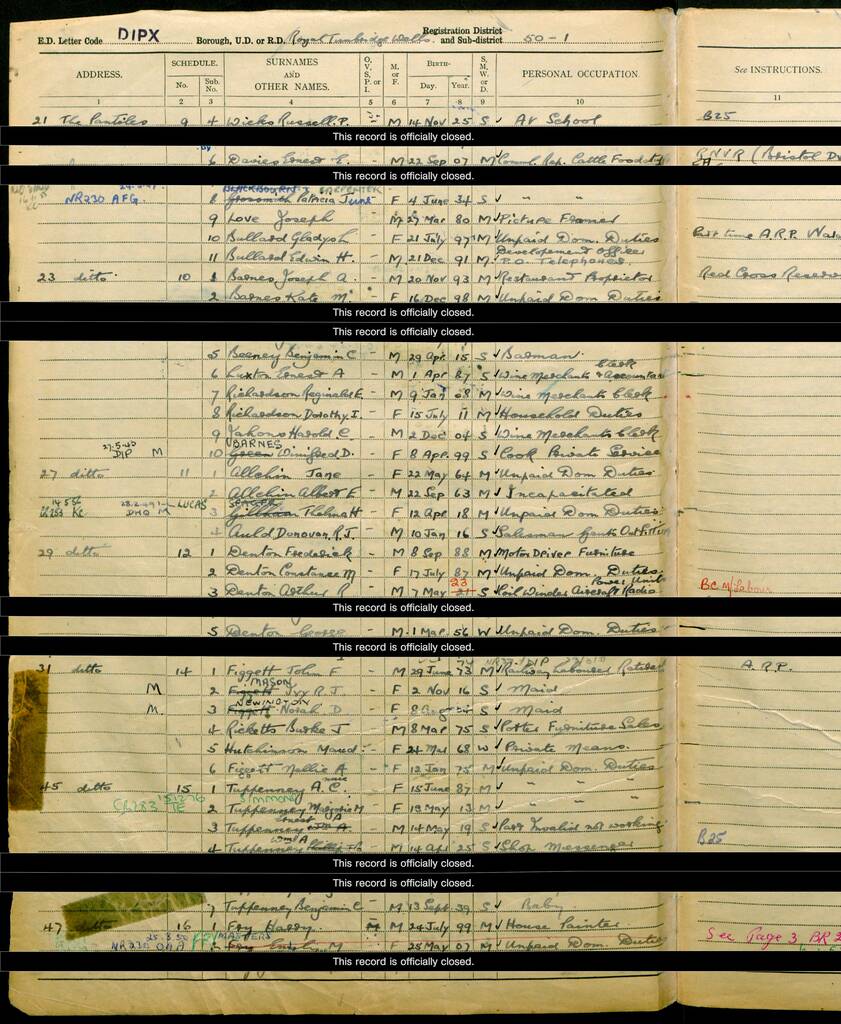 E.D. Letter Code DIPX Borough, U.D. or R.D. Royal Tunbridge Wells Registration District and Sub-district 50-1
ADDRESS. SCHEDULE. No. Sub. No. SURNAMES AND OTHER NAMES. O, V, S, P, or I M. or F. BIRTH- Day. Year. S, M, W, or D. PERSONAL OCCUPATION. See INSTRUCTIONS.
1 2 3 4 5 6 7 8 9 10 11
21 The Pantiles 9 4 Wicks Russell P. M 14 Nov 25 S At School B25
This record is officially closed.
6 Davies Ernest E. M 22 Sep 07 M Comml. Rep. Cattle Food RNVR (Bristol
This record is officially closed.
BLACKBOURN CARPENTER
NR230 AFG. 8 Patricia June F 4 June 34 S " "
9 Love Joseph M 27 Mar 80 M Picture Framer
10 Bullard Gladys F 21 July 97 M Unpaid Dom. Duties Part time A.R.P.
11 Bullard Edwin H. M 21 Dec 91 M Development Officer P.O. Telephones
23 ditto 10 1 Barnes Joseph A. M 20 Nov 93 M Restaurant Proprietor Red Cross Reserve
2 Barnes Kate M. F 16 Dec 98 M Unpaid Dom Duties
This record is officially closed.
This record is officially closed.
5 Beeney Benjamin C M 29 Apr 15 S Barman
6 Luxton Ernest A M 1 Apr 87 S Wine Merchants Clerk & Accountant
7 Richardson Reginald E. M 9 Jan 08 M Wine Merchants Clerk
8 Richardson Dorothy I. F 15 July 11 M Household Duties
9 Harold C. M 2 Dec 04 S Wine Merchants Clerk
BARNES
27.5.40 DIP M 10 Green Winifred D. F 8 Apr 99 S Cook Private Service
27 ditto 11 1 Allchin Jane F 22 May 64 M Unpaid Dom Duties
2 Allchin Albert E M 22 Sep 63 M Incapacitated
LUCAS 3 Thelma H F 12 Apr 18 M Unpaid Dom Duties
4 Auld Donovan R.J. M 10 Jan 16 S Salesman Gents Outfitting
29 ditto 12 1 Denton Frederick M 8 Sep 88 M Motor Driver Furniture
2 Denton Constance M F 17 July 87 M Unpaid Dom. Duties
23 Power Unit
3 Denton Arthur R M 7 May 21 S Coil Winder Aircraft Radio BC M/Labour
This record is officially closed.
5 Denton George M 1 Mar 56 W Unpaid Dom. Duties
This record is officially closed.
31 ditto 14 1 Figgett John F M 29 June 73 M Railway Labourer Retired A.R.P.
MASON
M 2 Figgett Ivy R.J. F 2 Nov 16 S Maid
NEWINGTON
M. 3 Figgett Norah D F 8 S Maid
4 Ricketts Burke J M 8 Mar 75 S Porter Furniture Sales
5 Hutchinson Maud F 24 Mar 68 W Private Means.
6 Figgett Nellie A F 12 Jan 75 M Unpaid Dom. Duties
45 ditto 15 1 Tuppenney A. C. F 15 June 87 M " "
SIMMONS
2 Tuppenney Marjorie M F 18 May 13 M " "
Ernest A
3 Tuppenney M 14 May 19 S Part Invalid not working
Wm A
4 Tuppenney M 14 Apr 25 S Shop Messenger B25
This record is officially closed.
This record is officially closed.
7 Tuppenney Benjamin C M 13 Sept 39 S Baby
47 ditto 16 1 Fry Harry M 24 July 99 M House Painter
FRY MASTERS
NR230 M F 25 May 07 M Unpaid Dom. Duties See Page 3, BR
This record is officially closed.